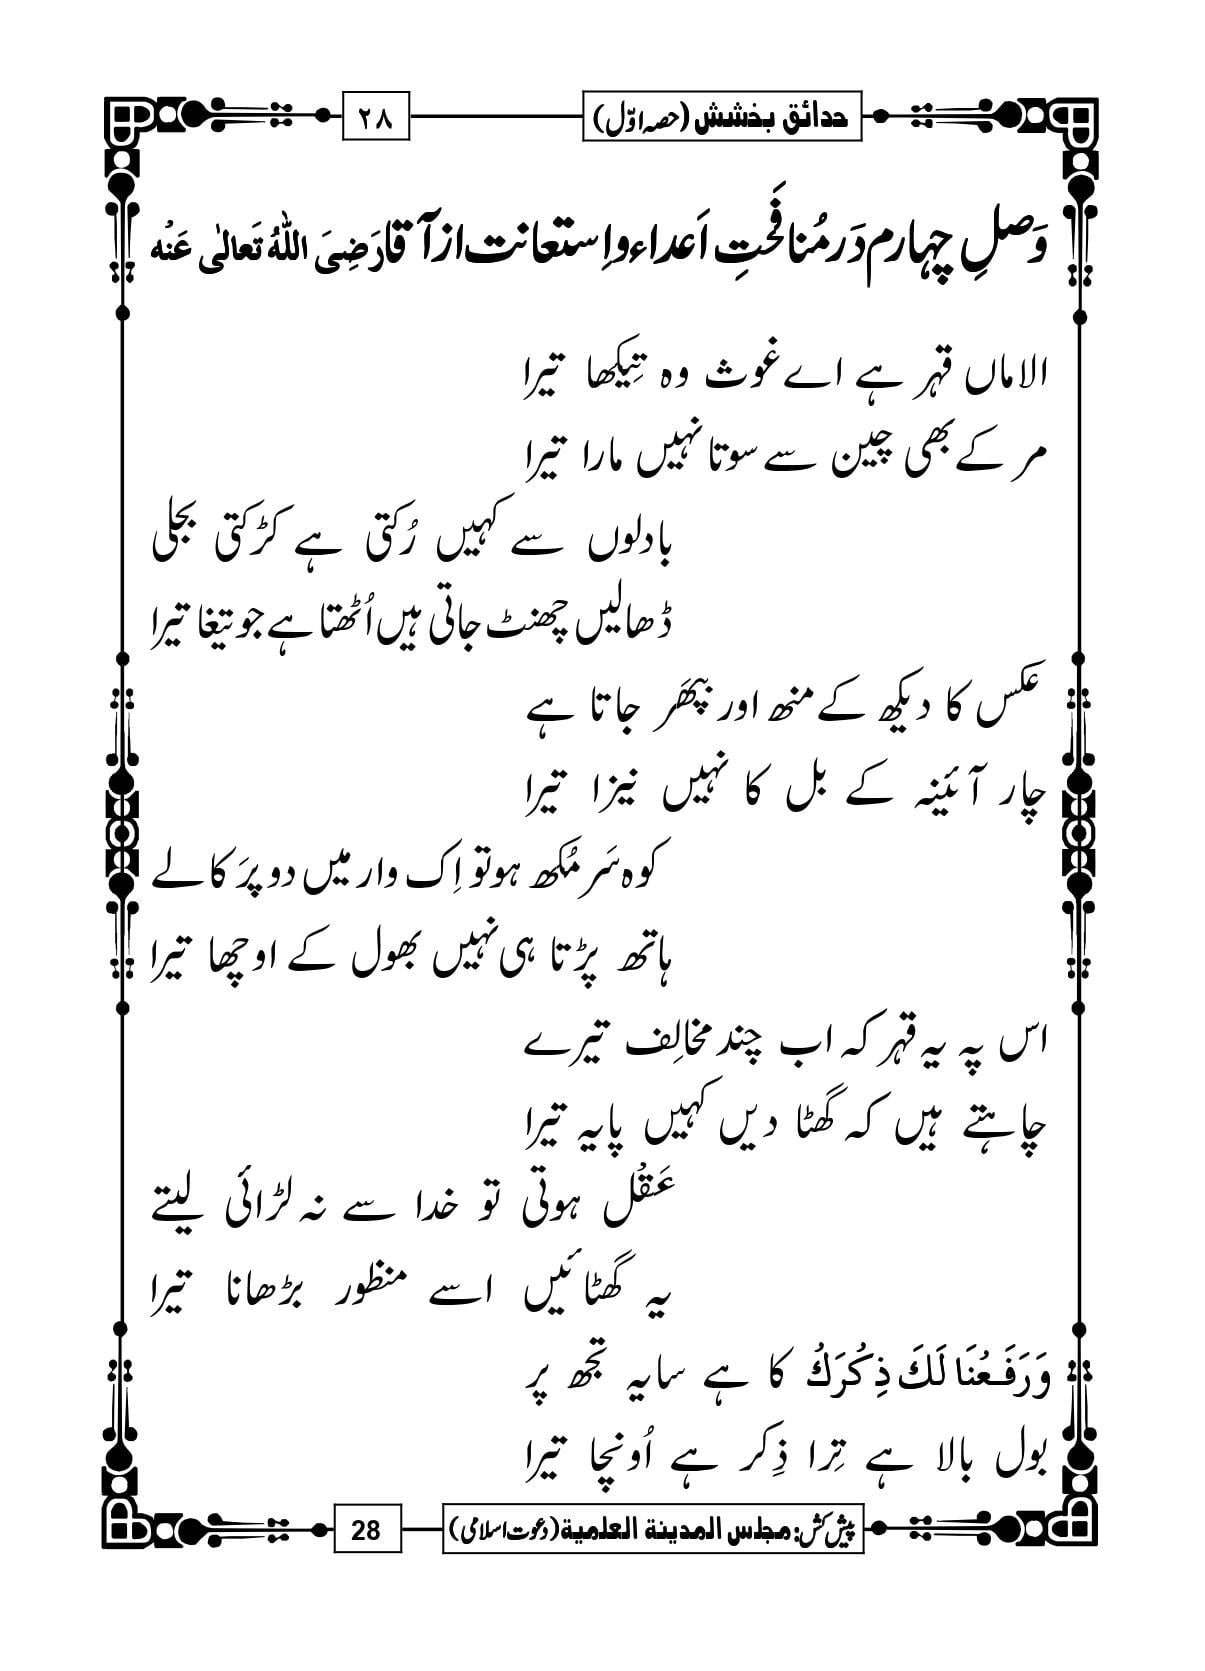 حدائق بخشش (حصہ اوّل)
۲۸
وَصلِ چہارم دَر مُنافَحَتِ اَعداء و اِستعانت از آقا رَضِیَ اللّٰہُ تَعالٰی عَنْہ
الاماں قہر ہے اے غوث وہ تِیکھا تیرا
مر کے بھی چین سے سوتا نہیں مارا تیرا
بادلوں سے کہیں رُکتی ہے کڑکتی بجلی
ڈھالیں چھنٹ جاتی ہیں اُٹھتا ہے جو تیغا تیرا
عکس کا دیکھ کے منھ اور بِپھَر جاتا ہے
چار آئینہ کے بل کا نہیں نیزا تیرا
کوہ سَر مُکھ ہو تو اِک وار میں دو پَر کالے
ہاتھ پڑتا ہی نہیں بھول کے اوچھا تیرا
اس پہ یہ قہر کہ اب چند مخالِف تیرے
چاہتے ہیں کہ گھٹا دیں کہیں پایہ تیرا
عَقْل ہوتی تو خدا سے نہ لڑائی لیتے
یہ گھٹائیں اسے منظور بڑھانا تیرا
وَرَفَعْنَا لَكَ ذِكْرَكْ کا ہے سایہ تجھ پر
بول بالا ہے تِرا ذِکر ہے اُونچا تیرا
پیش کش: مجلس المدينة العلمية (دعوت اسلامی)
28